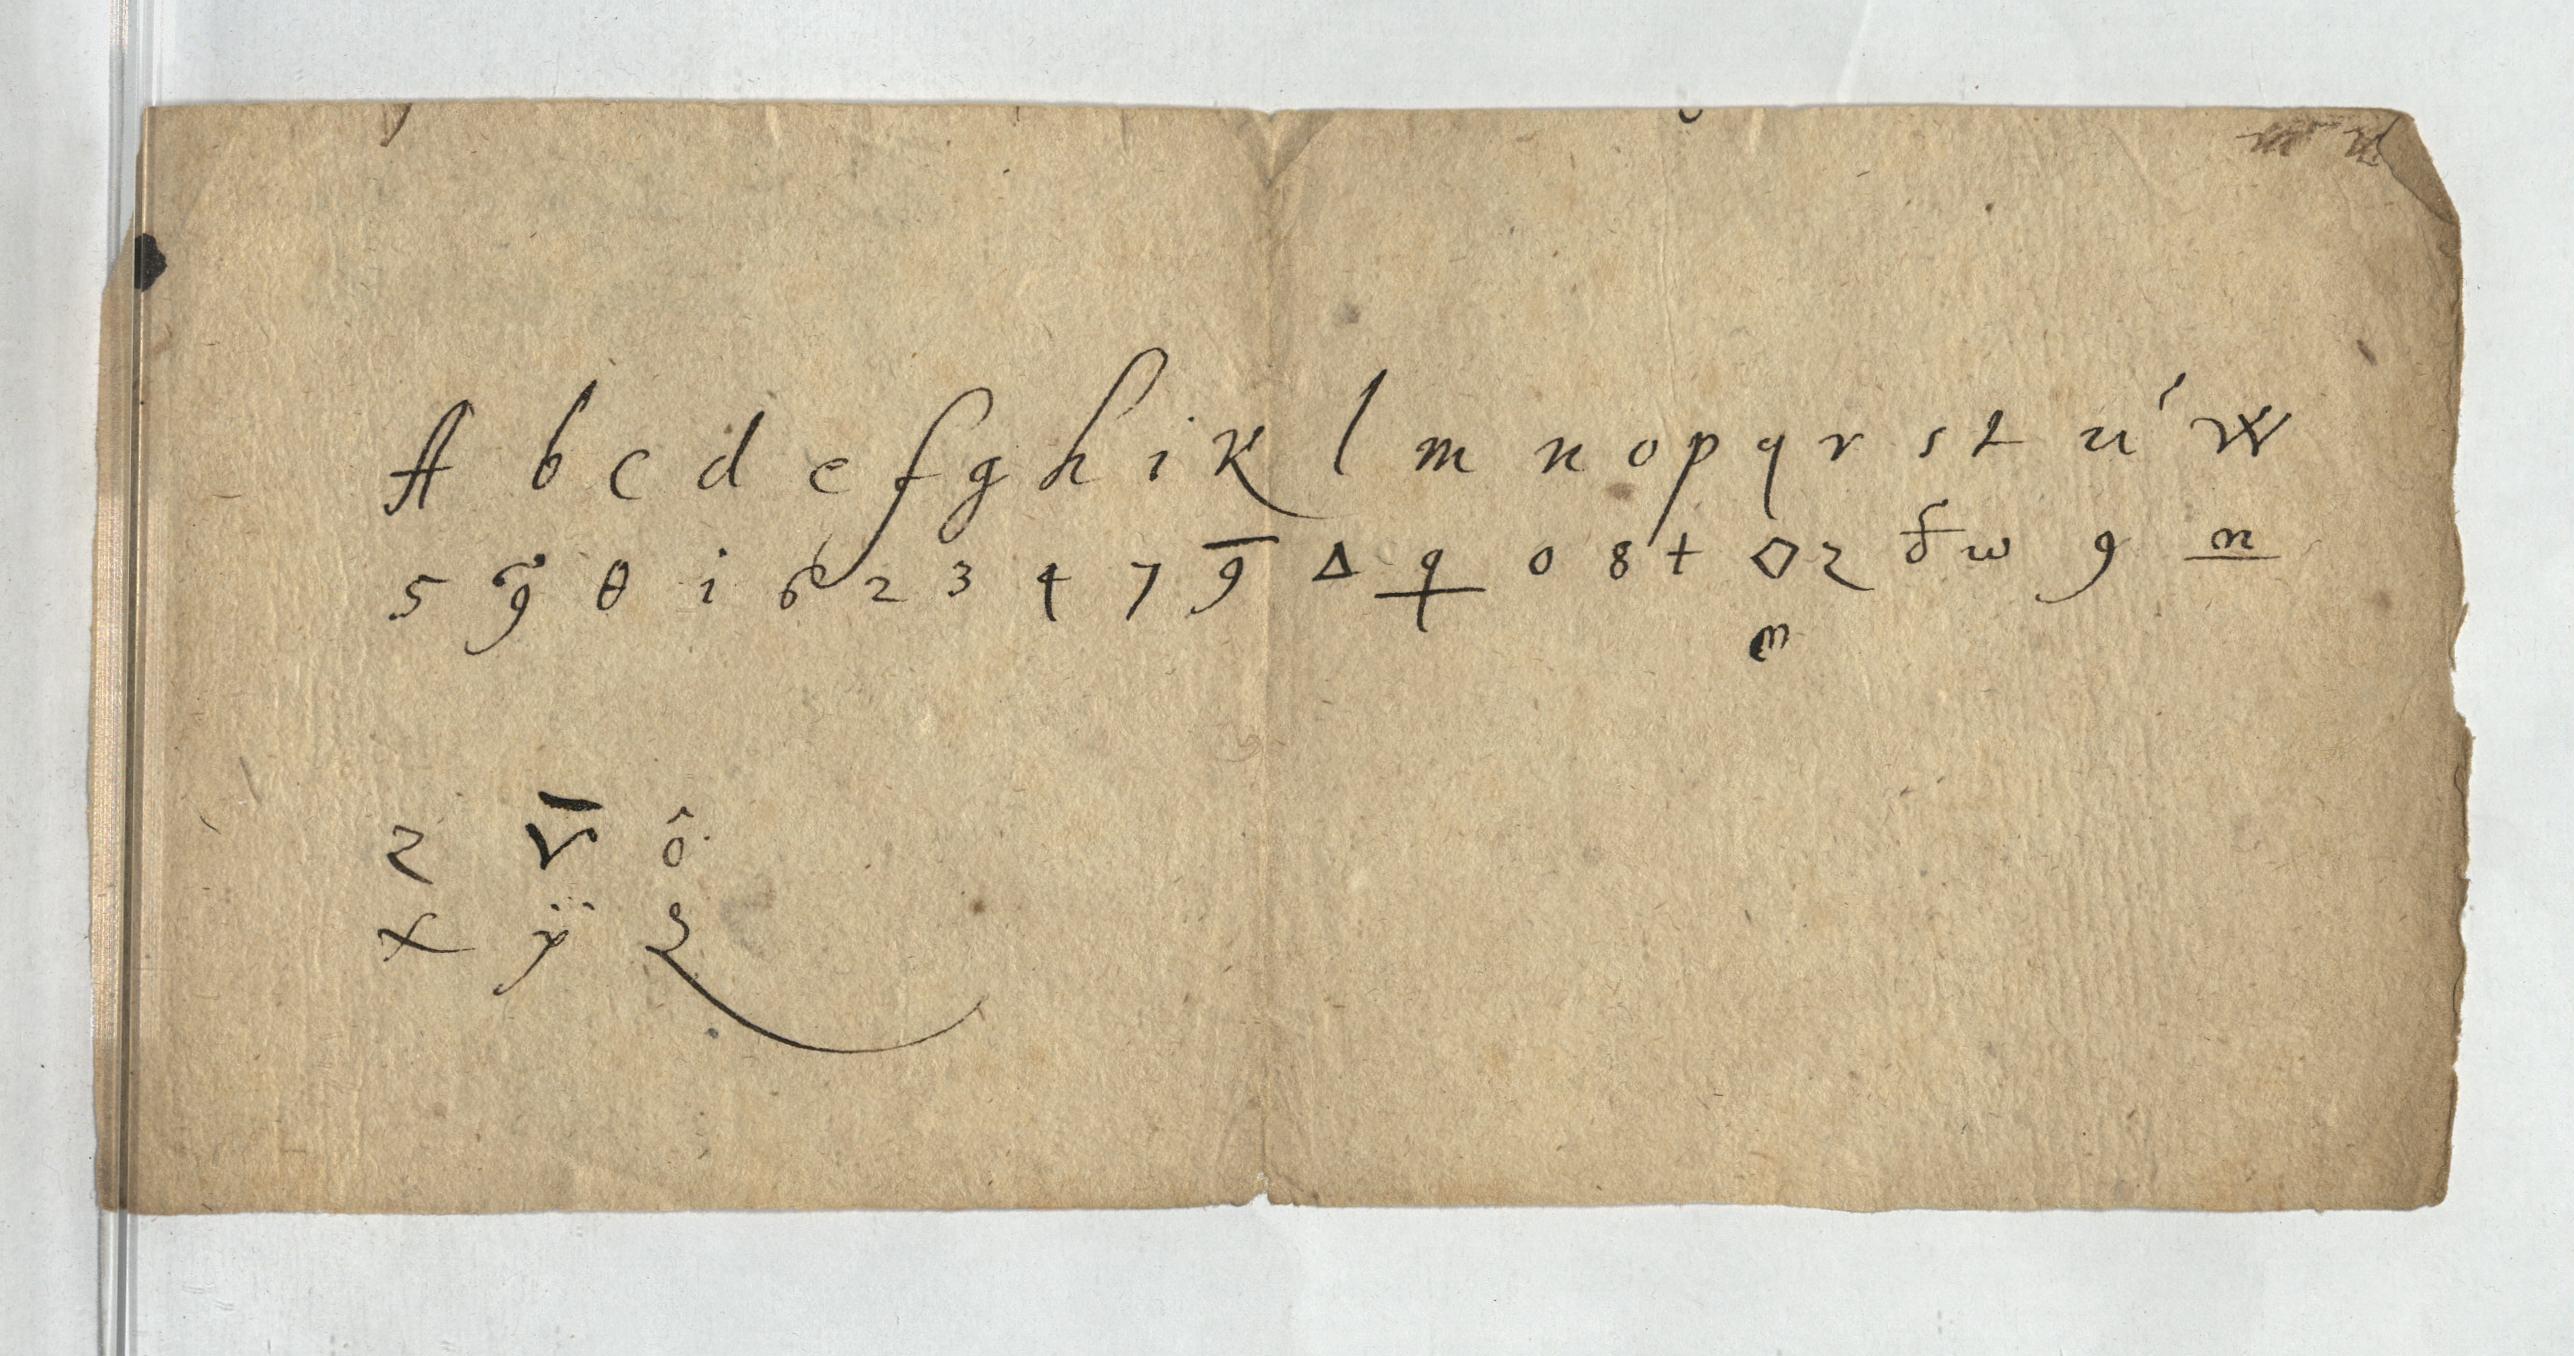 A b c d e f g h i K l m n o p q r s t ú W
5 θ i 6 2 3 4 7 9̅ Δ q 0 8 + ◇ 2 δ̵ w 9 n̲
m
2 v̅ ô
x ÿ 3